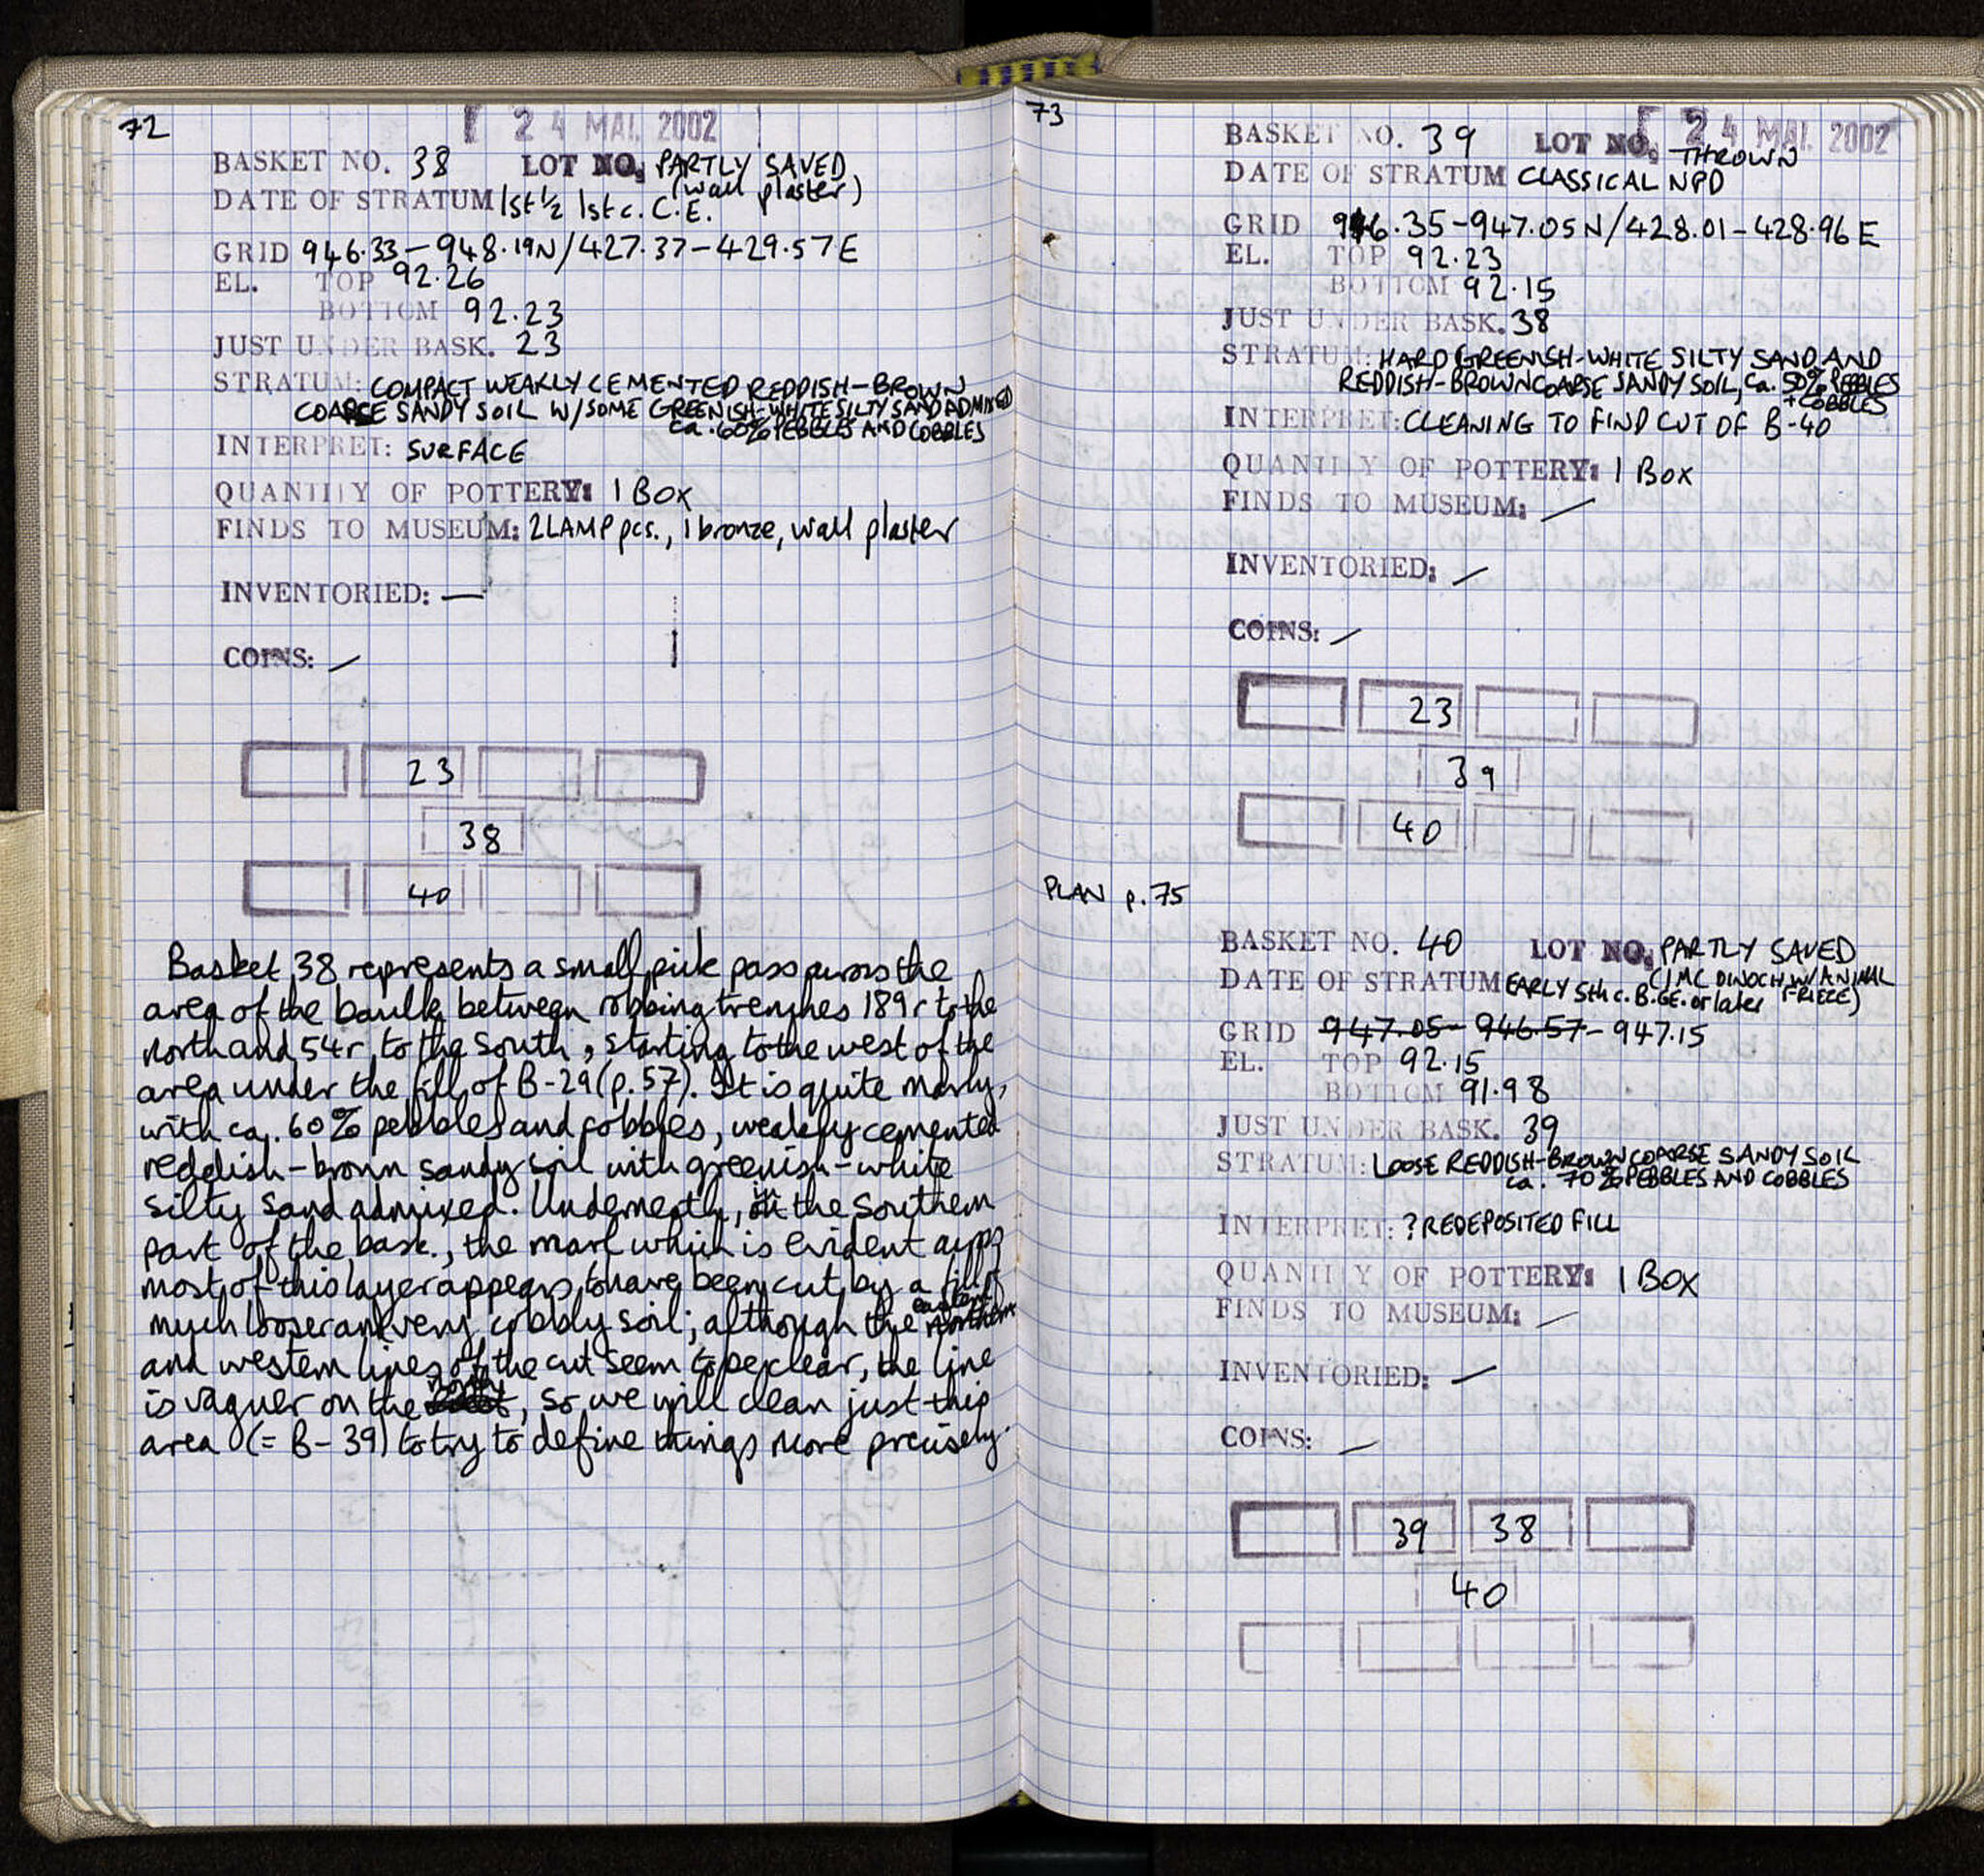 72
24 MAI 2002
BASKET NO. 38 LOT NO. PARTLY SAVED
(wall plaster)
DATE OF STRATUM 1st ½ 1st c. C.E.
GRID 946.33-948.19N/427.37-429.57E
EL. TOP 92.26
BOTTOM 92.23
JUST UNDER BASK. 23
STRATUM: COMPACT WEAKLY CEMENTED REDDISH-BROWN
COARSE SANDY SOIL W/SOME GREENISH-WHITE SILTY SAND ADMIXED
ca. 60% PEBBLES AND COBBLES
INTERPRET: SURFACE
QUANTITY OF POTTERY: 1 BOX
FINDS TO MUSEUM: 2 LAMP pcs., 1 bronze, wall plaster
INVENTORIED: —
COINS: —
23
38
40
Basket 38 represents a small pick pass across the
area of the baulk between robbing trenches 189r to the
north and 54r to the south, starting to the west of the
area under the fill of B-29 (p.57). It is quite marly,
with ca. 60% pebbles and cobbles, weakly cemented
reddish-brown sandy soil with greenish-white
silty sand admixed. Underneath, in the southern
part of the bask., the marl which is evident across
most of this layer appears to have been cut by a fill of
much looser and very cobbly soil; although the eastern northern
and western lines of the cut seem to be clear, the line
is vaguer on the north, so we will clean just this
area (= B-39) to try to define things more precisely.
73
24 MAI 2002
BASKET NO. 39 LOT NO. THROWN
DATE OF STRATUM CLASSICAL NPD
GRID 946.35-947.05N/428.01-428.96E
EL. TOP 92.23
BOTTOM 92.15
JUST UNDER BASK. 38
STRATUM: HARD GREENISH-WHITE SILTY SAND AND
REDDISH-BROWN COARSE SANDY SOIL, ca. 50% PEBBLES
+ COBBLES
INTERPRET: CLEANING TO FIND CUT OF B-40
QUANTITY OF POTTERY: 1 BOX
FINDS TO MUSEUM: —
INVENTORIED: —
COINS: —
23
39
40
PLAN p.75
BASKET NO. 40 LOT NO. PARTLY SAVED
(1 MC OINOCH W/ANIMAL
FRIEZE)
DATE OF STRATUM EARLY 5th c. B.C.E. or later
GRID 947.05- 946.57-947.15
EL. TOP 92.15
BOTTOM 91.98
JUST UNDER BASK. 39
STRATUM: LOOSE REDDISH-BROWN COARSE SANDY SOIL
ca. 70% PEBBLES AND COBBLES
INTERPRET: ? REDEPOSITED FILL
QUANTITY OF POTTERY: 1 BOX
FINDS TO MUSEUM: —
INVENTORIED: —
COINS: —
39 38
40